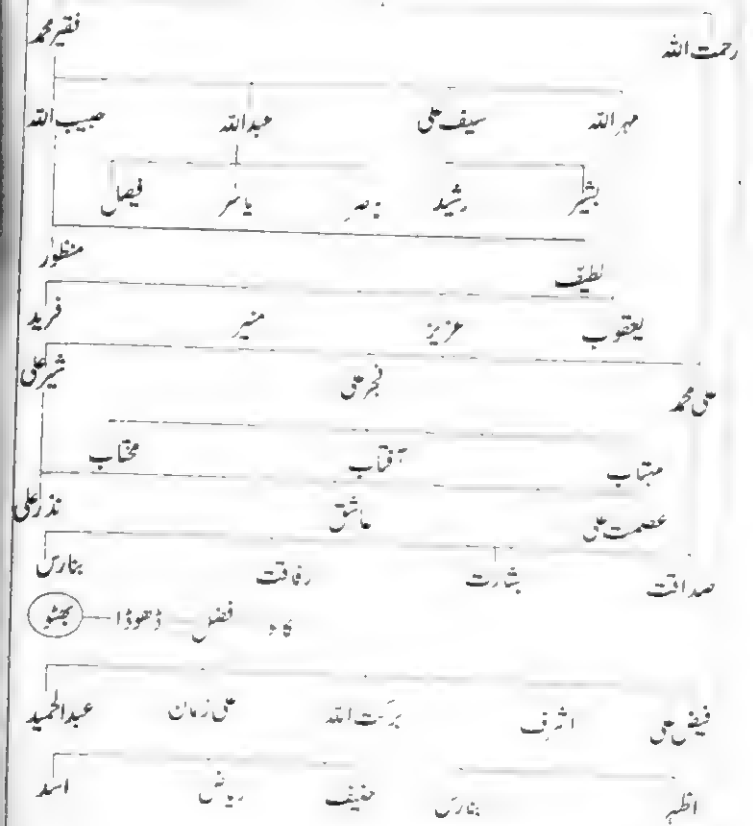 رحمت اللہ فقیر محمد
مہر اللہ سیف علی عبداللہ حبیب اللہ
بشیر رشید یاسر فیصل
لطیف منظور
یعقوب عزیز منیر فرید
علی محمد فجر علی شیر علی
مہتاب آفتاب مختاب
عصمت علی عاشق نذر علی
صداقت بشارت رفاقت بنارس
فضل ڈھوڈا بھٹو
فیض علی اشرف برکت اللہ علی زمان عبدالحمید
اظہر بنارس حنیف ریاض اسد